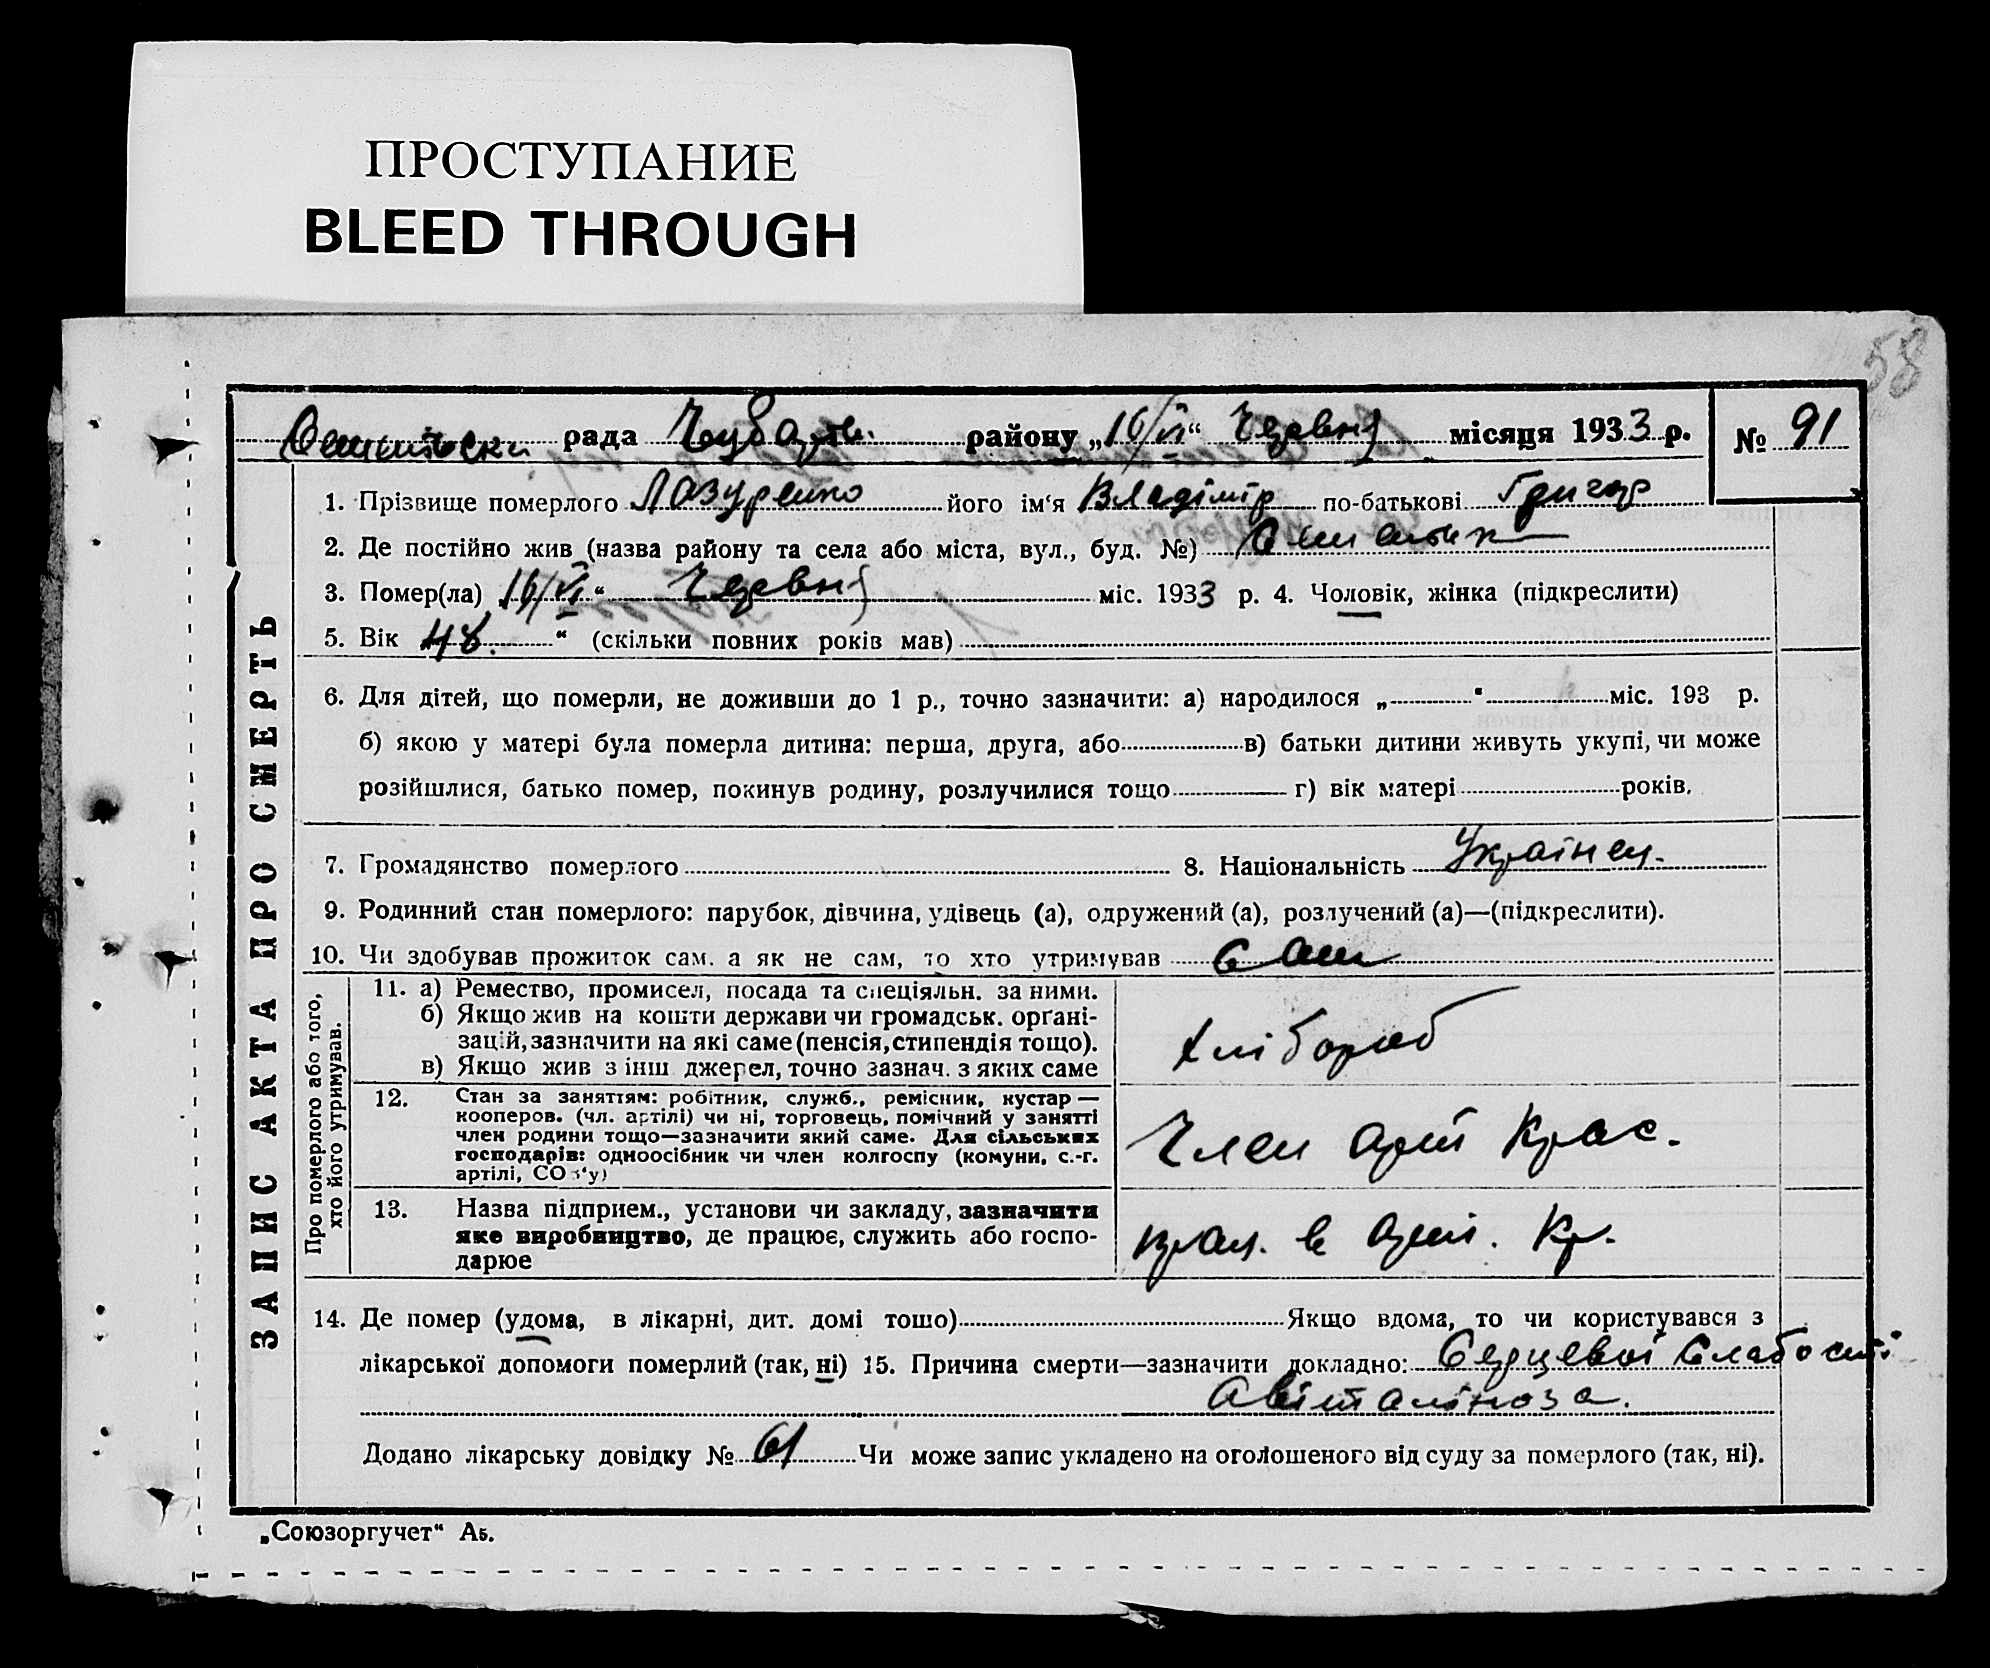 ПРОСТУПАНИЕ
BLEED THROUGH
58
рада Чубар. району „16/VI“ Червня місяця 1933 р. № 91
ЗАПИС АКТА ПРО СМЕРТЬ
1. Прізвище померлого Лазуренко його ім‘я Владімір по-батькові Григор
2. Де постійно жив (назва району та села або міста, вул., буд. №)
3. Помер(ла) „16/VI“ Червня міс. 1933 р. 4. Чоловік, жінка (підкреслити)
5. Вік 48. “ (скільки повних років мав)
6. Для дітей, що померли, не доживши до 1 р., точно зазначити: а) народилося „ “ міс. 193 р.
б) якою у матері була померла дитина: перша, друга, або в) батьки дитини живуть укупі, чи може
розійшлися, батько помер, покинув родину, розлучилися тощо г) вік матері років.
7. Громадянство померлого 8. Національність Українец.
9. Родинний стан померлого: парубок, дівчина, удівець (а), одружений (а), розлучений (а)—(підкреслити).
10. Чи здобував прожиток сам. а як не сам, то хто утримував сам
Про померлого або того,
хто його утримував.
11. а) Ремество, промисел, посада та спеціяльн. за ними.
б) Якщо жив на кошти держави чи громадськ. орґані-
зацій, зазначити на які саме (пенсія, стипендія тощо).
в) Якщо жив з інш джерел, точно зазнач. з яких саме
хлібороб
12. Стан за заняттям: робітник, служб., ремісник, кустар—
кооперов. (чл. артілі) чи ні, торговець, помічний у занятті
член родини тощо—зазначити який саме. Для сільських
господарів: одноосібник чи член колгоспу (комуни, с.-г.
артілі, СОЗ‘у)
Член арті Крас.
13. Назва підприєм., установи чи закладу, зазначити
яке виробництво, де працює, служить або госпо-
дарює
прац. в арті. Кр.
14. Де помер (удома, в лікарні, дит. домі тошо) Якщо вдома, то чи користувався з
лікарської допомоги померлий (так, ні) 15. Причина смерти—зазначити докладно: Серцевої слабости
авітаміноза.
Додано лікарську довідку № 61 Чи може запис укладено на оголошеного від суду за померлого (так, ні).
„Союзоргучет“ А5.